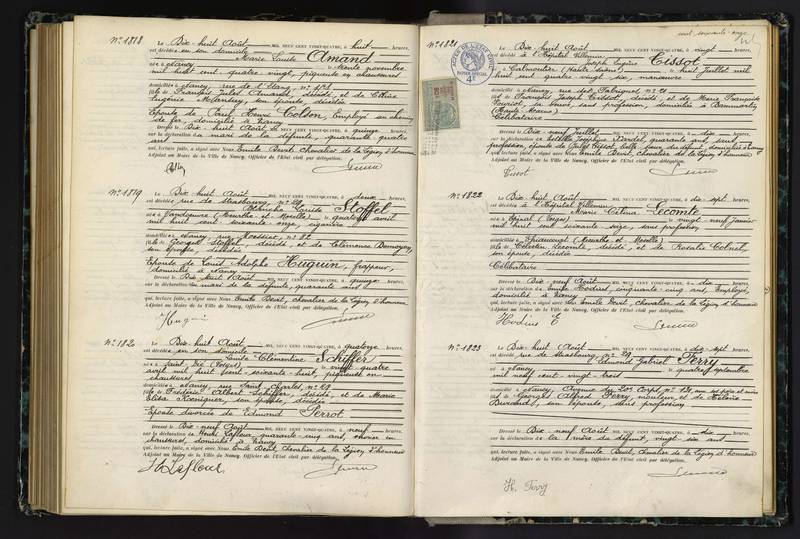 N° 1818
Le Dix-huit Août MIL NEUF CENT VINGT-QUATRE, à huit heures,
est décédée en son domicile
Marie Emile Amand
née à Nancy le trente novembre
mil huit cent quatre vingt, piqueuse en chaussures
domiciliée à Nancy, rue de l'Etang, n°
fille de François Amand, décédé, et de
Eugénie, son épouse, décédée
Epouse de Paul Henri Colson, Employé au chemin
de fer, domicilié à Nancy
Dressé le Dix-huit Août MIL NEUF CENT VINGT-QUATRE, à quinze heures,
sur la déclaration du mari de la défunte, quarante quatre
ans
qui, lecture faite, a signé avec Nous Emile Devit, Chevalier de la Légion d'honneur
Adjoint au Maire de la Ville de Nancy, Officier de l'Etat civil par délégation.
N° 1819
Le Dix-huit Août MIL NEUF CENT VINGT-QUATRE, à deux heures,
est décédée rue de Strasbourg, n° 29
Blanche Louise Stoffel
née à Vandoeuvre (Meurthe et Moselle) le quatorze avril
mil huit cent soixante onze, cigarière
domiciliée à Nancy, rue Messier, n° 82
fille de Georges Stoffel, décédé, et de Clémence
son épouse, décédée
Epouse de Louis Adolphe Huguin, frappeur,
domicilié à Nancy
Dressé le Dix-huit Août MIL NEUF CENT VINGT-QUATRE, à quinze heures,
sur la déclaration du mari de la défunte, quarante ans
qui, lecture faite, a signé avec Nous Emile Devit, Chevalier de la Légion d'honneur
Adjoint au Maire de la Ville de Nancy, Officier de l'Etat civil par délégation.
Huguin
N° 1820
Le Dix-huit Août MIL NEUF CENT VINGT-QUATRE, à quatorze heures,
est décédée en son domicile
Emilie Clémentine Schiffer
née à Saint Dié (Vosges) le vingt quatre
avril mil huit cent soixante-huit, piqueuse en
chaussures
domiciliée à Nancy, rue Saint Charles, n° 29
fille de Frédéric Albert Schiffer, décédé, et de Marie
Elisa, son épouse, décédée
Epouse divorcée de Edmond Perrot
Dressé le Dix-neuf Août MIL NEUF CENT VINGT-QUATRE, à neuf heures,
sur la déclaration de Henri Lafleur, quarante cinq ans, ouvrier en
chaussures, domicilié à Nancy
qui, lecture faite, a signé avec Nous Emile Devit, Chevalier de la Légion d'honneur
Adjoint au Maire de la Ville de Nancy, Officier de l'Etat civil par délégation.
H. Lafleur
cent soixante onze
N° 1821
PAPIER SPECIAL
Le Dix-huit Août MIL NEUF CENT VINGT-QUATRE, à vingt heures,
est décédé à l'Hôpital Villemin
Joseph Eugène Tissot
né à Calmoutier (Haute Saône) le huit Juillet mil
huit cent quatre vingt six, manœuvre
domicilié à Nancy, rue des Fabriques n° 21
fils de François Joseph Tissot, décédé, et de Marie Françoise
sa veuve, sans profession, domiciliée à
Célibataire
Dressé le Dix-neuf Août MIL NEUF CENT VINGT-QUATRE, à dix heures,
sur la déclaration de Estelle Joséphine, quarante ans, sans
profession, épouse de Jules Tissot, belle sœur du défunt, domiciliée à Nancy
qui, lecture faite, a signé avec Nous Emile Devit, Chevalier de la Légion d'honneur
Adjoint au Maire de la Ville de Nancy, Officier de l'Etat civil par délégation.
Tissot
N° 1822
Le Dix-huit Août MIL NEUF CENT VINGT-QUATRE, à dix sept heures,
est décédée à l'Hôpital Villemin
Marie Célina Lecomte
née à Epinal (Vosges) le vingt neuf Janvier
mil huit cent soixante seize, sans profession,
domiciliée à Thiaucourt (Meurthe et Moselle)
fille de Célestin Lecomte, décédé, et de Rosalie Colnet,
son épouse, décédée
Célibataire
Dressé le Dix-neuf Août MIL NEUF CENT VINGT-QUATRE, à dix heures,
sur la déclaration de Emile Hodius, cinquante cinq ans, Employé
domicilié à Nancy
qui, lecture faite, a signé avec Nous Emile Devit, Chevalier de la Légion d'honneur
Adjoint au Maire de la Ville de Nancy, Officier de l'Etat civil par délégation.
Hodius E
N° 1823
Le Dix-huit Août MIL NEUF CENT VINGT-QUATRE, à dix-sept heures,
est décédé rue de Strasbourg, n° 29
Edmond Gabriel Ferry
né à Nancy le quatre septembre
mil neuf cent vingt-trois
domicilié à Nancy, Avenue du 20e Corps, n° 138, avec ses père et mère
fils de Georges Alfred Ferry, mouleur, et de Hélène
son épouse, sans profession
Dressé le Dix-neuf Août MIL NEUF CENT VINGT-QUATRE, à dix heures,
sur la déclaration de la mère du défunt, vingt-six ans
qui, lecture faite, a signé avec Nous Emile Devit, Chevalier de la Légion d'honneur
Adjoint au Maire de la Ville de Nancy, Officier de l'Etat civil par délégation.
H. Ferry